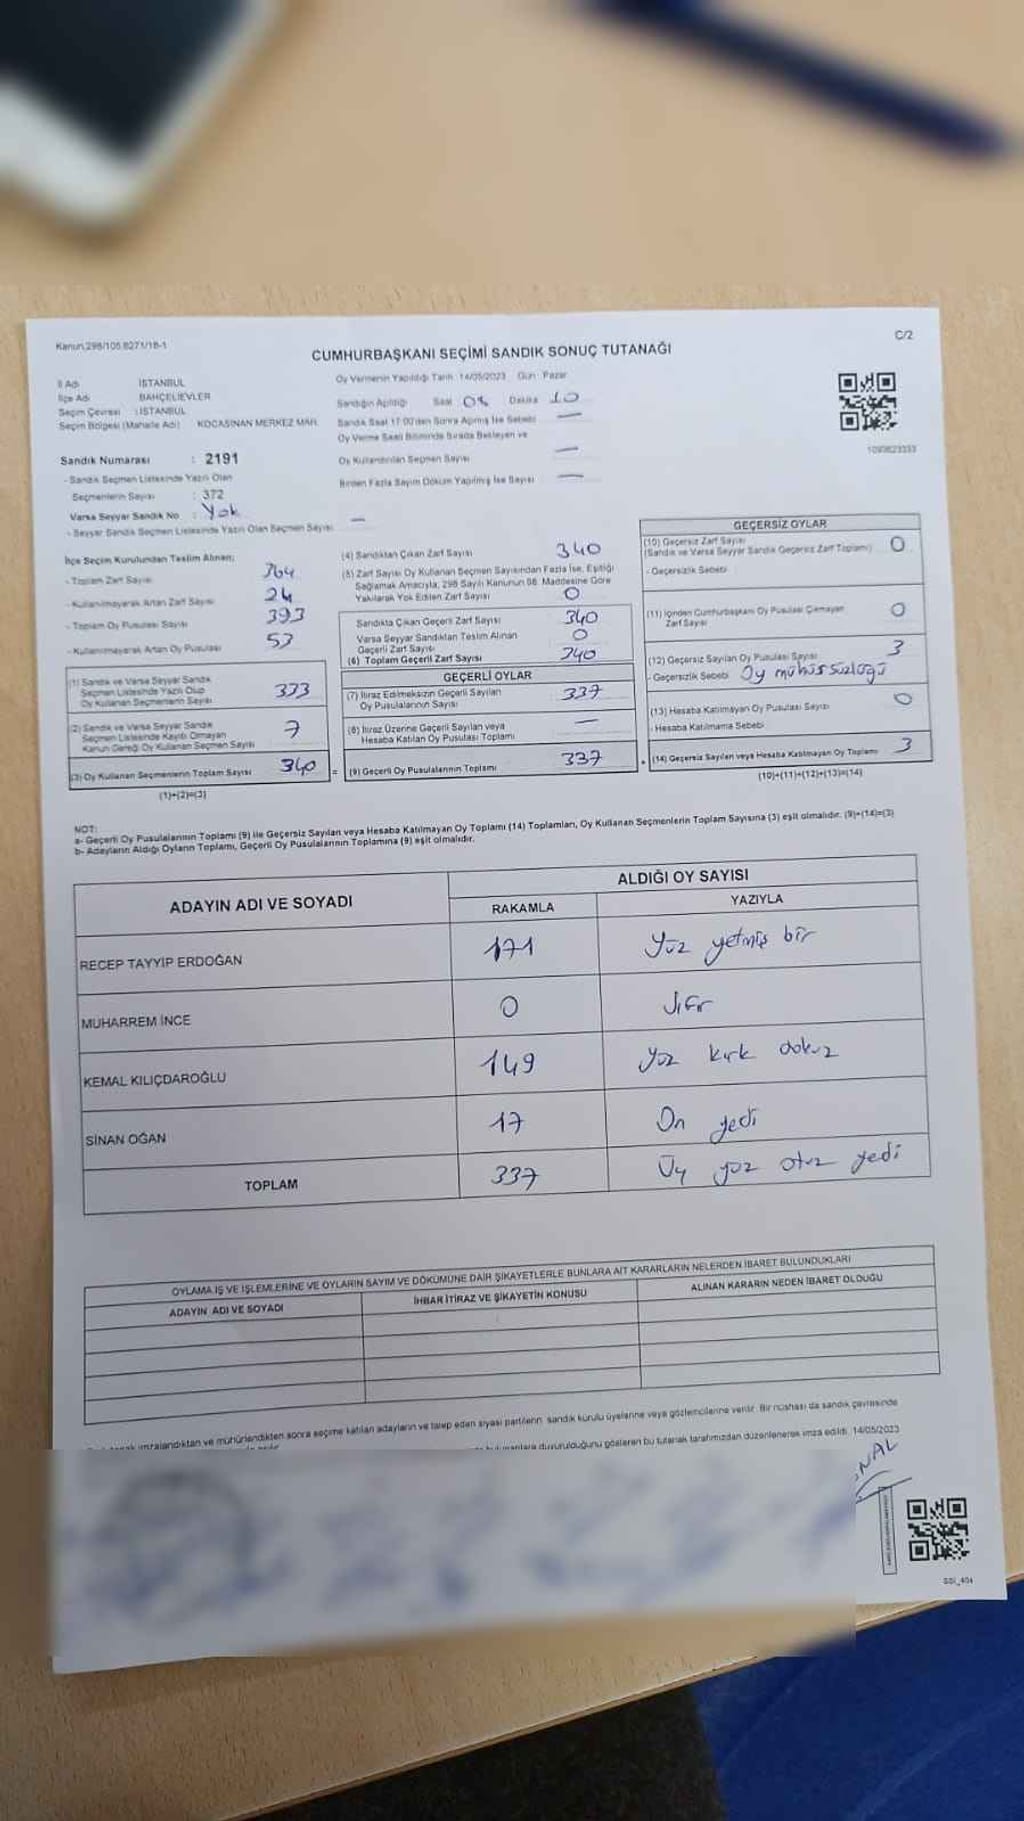 Kanun,298/105,6271/18-1
C/2
CUMHURBAŞKANI SEÇİMİ SANDIK SONUÇ TUTANAĞI
İl Adı İSTANBUL
İlçe Adı BAHÇELİEVLER
Seçim Çevresi : İSTANBUL
Seçim Bölgesi (Mahalle Adı) KOCASİNAN MERKEZ MAH.
Sandık Numarası : 2191
- Sandık Seçmen Listesinde Yazılı Olan
Seçmenlerin Sayısı : 372
Varsa Seyyar Sandık No : Yok
- Seyyar Sandık Seçmen Listesinde Yazılı Olan Seçmen Sayısı —
Oy Vermenin Yapıldığı Tarih 14/05/2023 Gün Pazar
Sandığın Açıldığı Saat 08 Dakika 10
Sandık Saat 17:00'den Sonra Açılmış İse Sebebi —
Oy Verme Saati Bitiminde Sırada Bekleyen ve
Oy Kullandırılan Seçmen Sayısı —
Birden Fazla Sayım Döküm Yapılmış İse Sayısı —
1093623333
İlçe Seçim Kurulundan Teslim Alınan;
- Toplam Zarf Sayısı 364
- Kullanılmayarak Artan Zarf Sayısı 24
- Toplam Oy Pusulası Sayısı 393
- Kullanılmayarak Artan Oy Pusulası 53
(1) Sandık ve Varsa Seyyar Sandık
Seçmen Listesinde Yazılı Olup
Oy Kullanan Seçmenlerin Sayısı 333
(2) Sandık ve Varsa Seyyar Sandık
Seçmen Listesinde Kayıtlı Olmayan
Kanun Gereği Oy Kullanan Seçmen Sayısı 7
(3) Oy Kullanan Seçmenlerin Toplam Sayısı 340
(1)+(2)=(3)
(4) Sandıktan Çıkan Zarf Sayısı 340
(5) Zarf Sayısı Oy Kullanan Seçmen Sayısından Fazla İse, Eşitliği
Sağlamak Amacıyla, 298 Sayılı Kanunun 98. Maddesine Göre
Yakılarak Yok Edilen Zarf Sayısı 0
Sandıkta Çıkan Geçerli Zarf Sayısı 340
Varsa Seyyar Sandıktan Teslim Alınan
Geçerli Zarf Sayısı 0
(6) Toplam Geçerli Zarf Sayısı 340
GEÇERLİ OYLAR
(7) İtiraz Edilmeksizin Geçerli Sayılan
Oy Pusulalarının Sayısı 337
(8) İtiraz Üzerine Geçerli Sayılan veya
Hesaba Katılan Oy Pusulası Toplamı —
= (9) Geçerli Oy Pusulalarının Toplamı 337
GEÇERSİZ OYLAR
(10) Geçersiz Zarf Sayısı
(Sandık ve Varsa Seyyar Sandık Geçersiz Zarf Toplamı) 0
- Geçersizlik Sebebi
(11) İçinden Cumhurbaşkanı Oy Pusulası Çıkmayan
Zarf Sayısı 0
(12) Geçersiz Sayılan Oy Pusulası Sayısı 3
- Geçersizlik Sebebi Oy mühürsüzlüğü
(13) Hesaba Katılmayan Oy Pusulası Sayısı 0
- Hesaba Katılmama Sebebi
+ (14) Geçersiz Sayılan veya Hesaba Katılmayan Oy Toplamı 3
(10)+(11)+(12)+(13)=(14)
NOT:
a- Geçerli Oy Pusulalarının Toplamı (9) ile Geçersiz Sayılan veya Hesaba Katılmayan Oy Toplamı (14) Toplamları, Oy Kullanan Seçmenlerin Toplam Sayısına (3) eşit olmalıdır. (9)+(14)=(3)
b- Adayların Aldığı Oyların Toplamı, Geçerli Oy Pusulalarının Toplamına (9) eşit olmalıdır.
ADAYIN ADI VE SOYADI
ALDIĞI OY SAYISI
RAKAMLA YAZIYLA
RECEP TAYYİP ERDOĞAN 171 Yüz yetmiş bir
MUHARREM İNCE 0 Sıfır
KEMAL KILIÇDAROĞLU 149 yüz kırk dokuz
SİNAN OĞAN 17 On yedi
TOPLAM 337 Üç yüz otuz yedi
OYLAMA İŞ VE İŞLEMLERİNE VE OYLARIN SAYIM VE DÖKÜMÜNE DAİR ŞİKAYETLERLE BUNLARA AİT KARARLARIN NELERDEN İBARET BULUNDUKLARI
ADAYIN ADI VE SOYADI İHBAR İTİRAZ VE ŞİKAYETİN KONUSU ALINAN KARARIN NEDEN İBARET OLDUĞU
imzalandıktan ve mühürlendikten sonra seçime katılan adayların ve talep eden siyasi partilerin sandık kurulu üyelerine veya gözlemcilerine verilir. Bir nüshası da sandık çevresinde
duyurulduğunu gösteren bu tutanak tarafımızdan düzenlenerek imza edildi. 14/05/2023